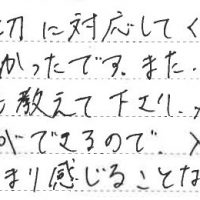 切に対応してく
かったです。また、
も教えて下さり、
ができるので、
まり感じることな